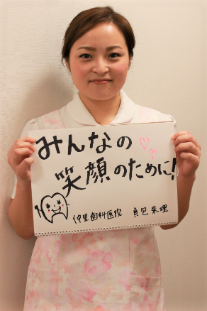 みんなの
笑顔のために!
歯科医院